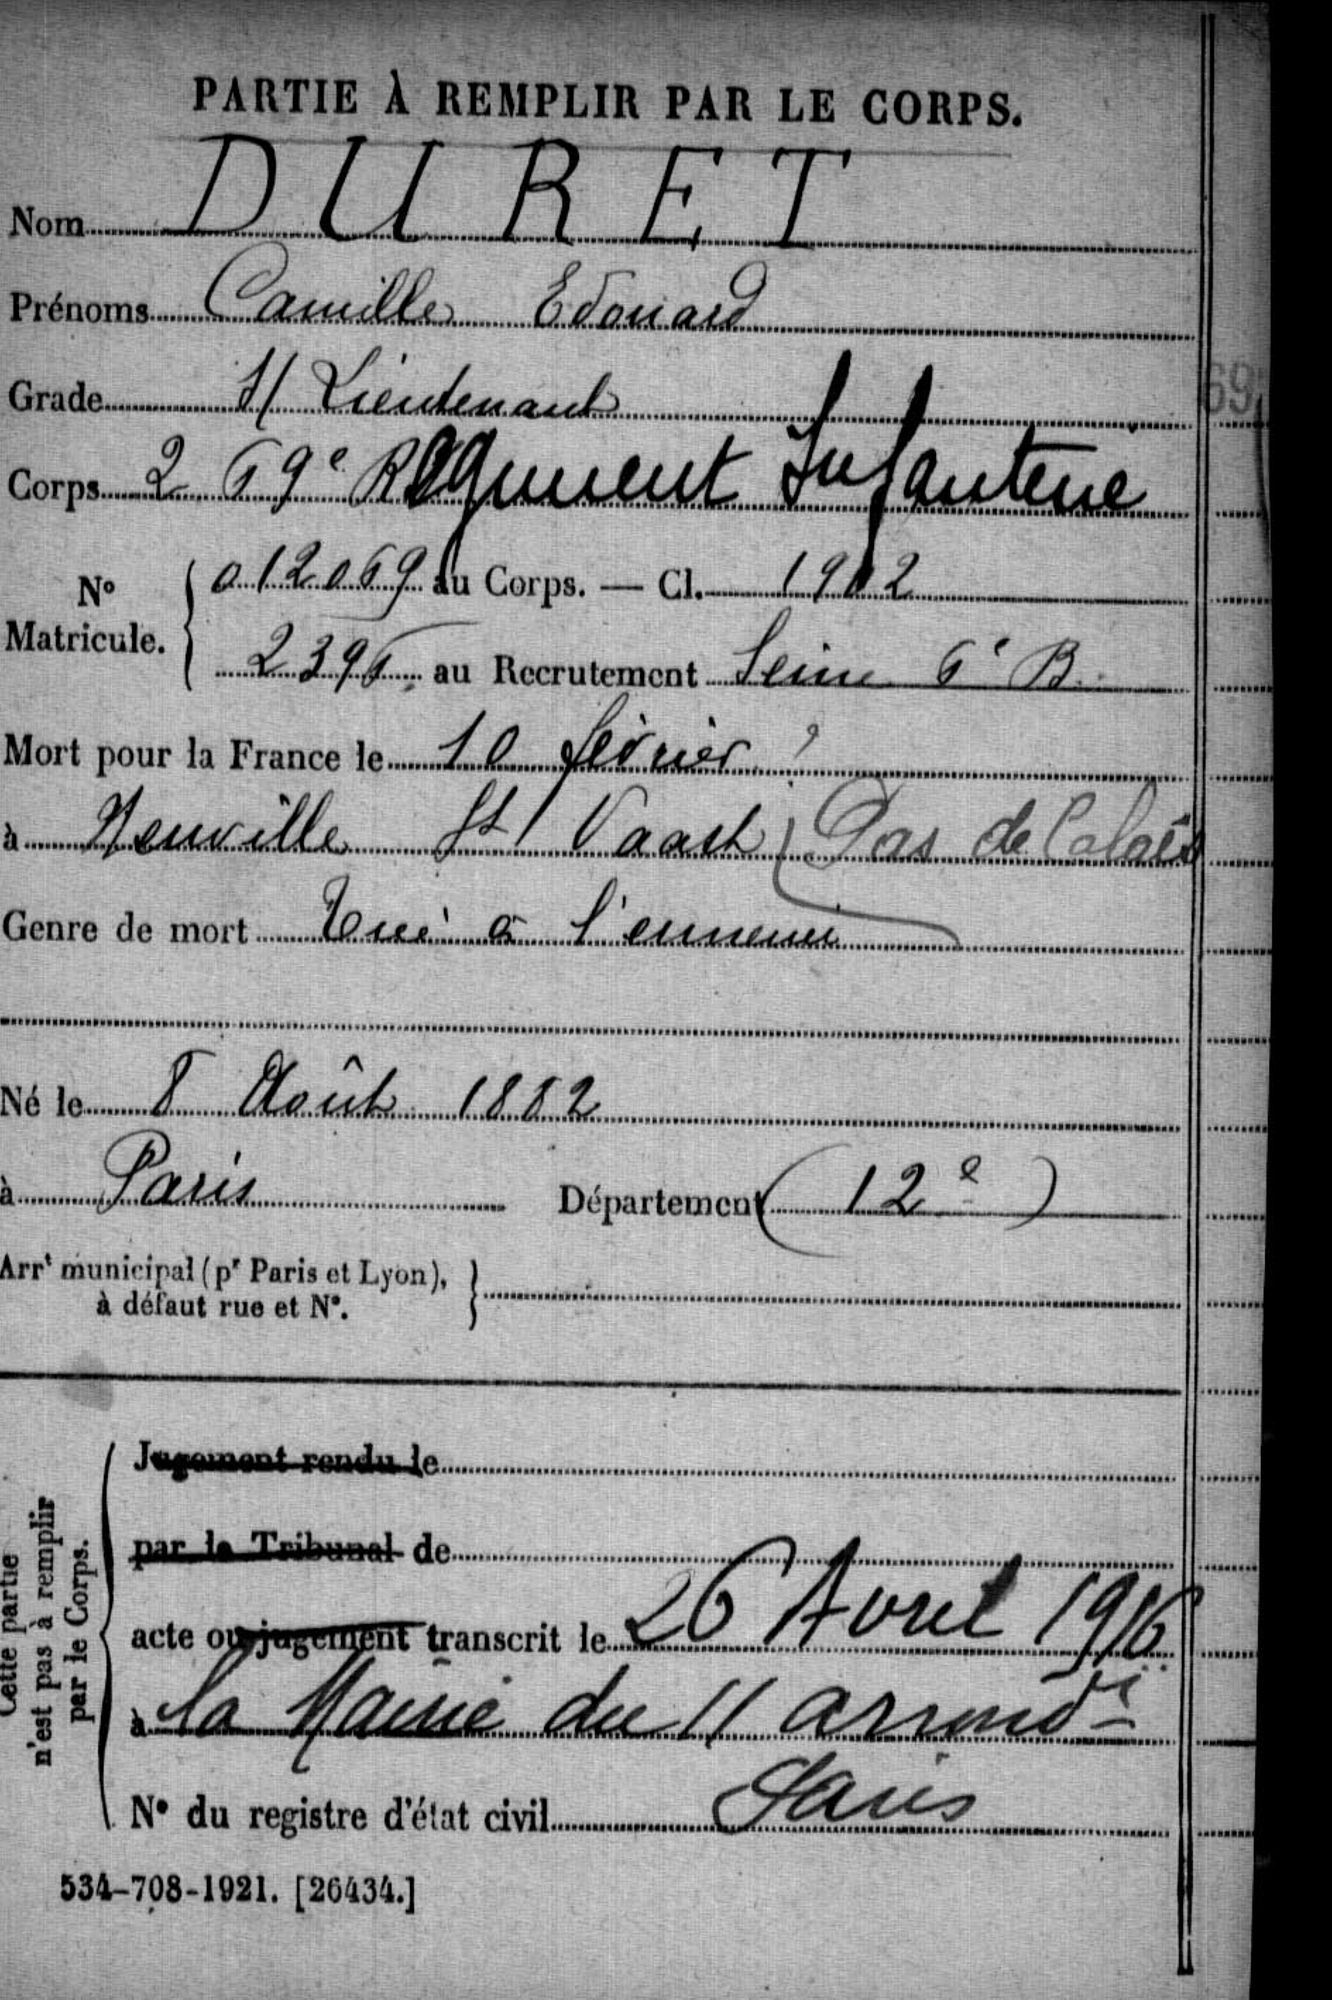 PARTIE À REMPLIR PAR LE CORPS.
Nom DURET
Prénoms Camille Edouard
Grade S/ Lieutenant
Corps 269e Régiment Infanterie
No Matricule. { 012069 au Corps. — Cl. 1902
2396 au Recrutement Seine 6e B
Mort pour la France le 10 février ?
à Neuville St Vaast (Pas de Calais
Genre de mort Tué à l'ennemi
Né le 8 Août 1882
à Paris Département (12e)
Arrt municipal (pr Paris et Lyon), à défaut rue et No. }
Cette partie n'est pas à remplir par le Corps.
Jugement rendu le
par le Tribunal de
acte ou jugement transcrit le 26 Avril 1916
à la Mairie du 11 arrondt
Paris
No du registre d'état civil
534-708-1921. [26434.]
69